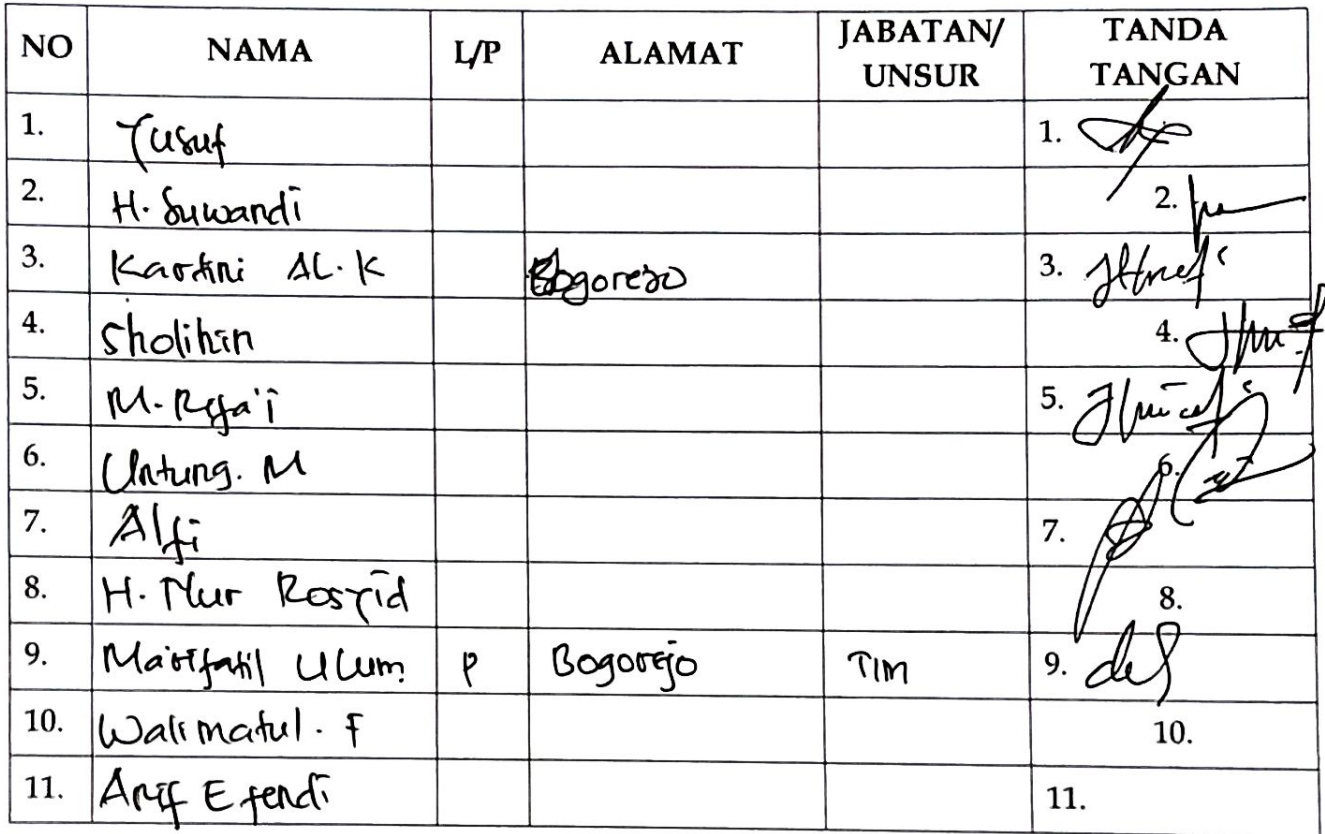 NO NAMA L/P ALAMAT JABATAN/ UNSUR TANDA TANGAN
1. Yusuf 1.
2. H. Suwandi 2.
3. Kartini AL. K Bogorejo 3.
4. Sholihin 4.
5. M. Rifa'i 5.
6. Untung. M 6.
7. Alfi 7.
8. H. Nur Rosyid 8.
9. Ma'rifatil Ulum P Bogorejo TIM 9.
10. Walimatul. F 10.
11. Arif Efendi 11.